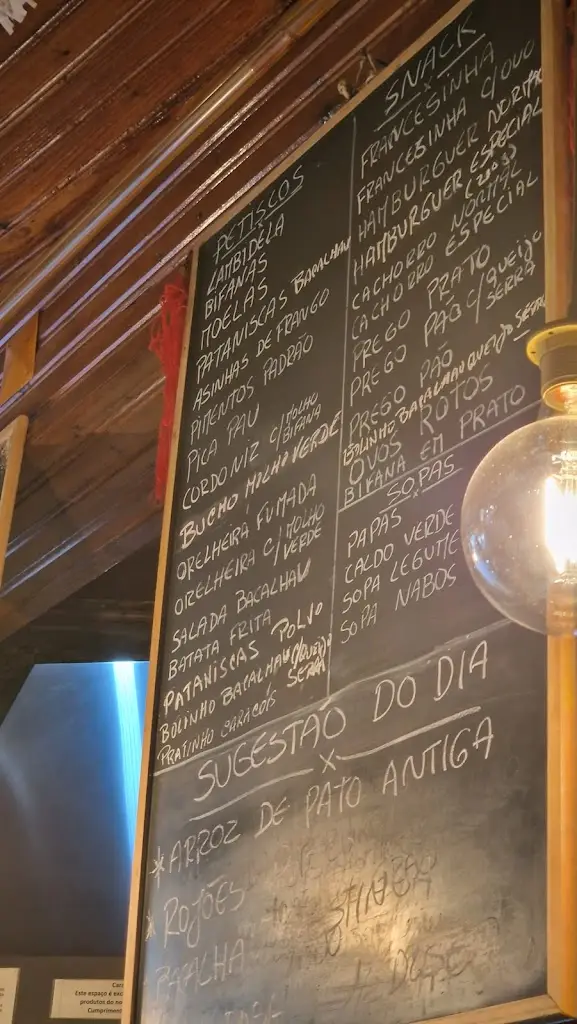 PETISCOS
LAMBIDELA
BIFANAS
MOELAS
PATANISCAS BACALHAU
ASINHAS DE FRANGO
PIMENTOS PADRÃO
PICA PAU
CORDONIZ C/MOLHO BIFANA
BUCHO MOLHO VERDE
ORELHEIRA FUMADA
ORELHEIRA C/MOLHO VERDE
SALADA BACALHAU
BATATA FRITA
PATANISCAS POLVO
BOLINHO BACALHAU C/QUEIJO SERRA
PRATINHO CARACÓIS
SNACK
X
FRANCESINHA
FRANCESINHA C/OVO
HAMBURGUER NORMAL
HAMBURGUER ESPECIAL
(200g)
CACHORRO NORMAL
CACHORRO ESPECIAL
PREGO PRATO
PREGO PÃO C/QUEIJO SERRA
PREGO PÃO
BOLINHO BACALHAU QUEIJO SERRA
OVOS ROTOS
BIFANA EM PRATO
SOPAS
X
PAPAS
CALDO VERDE
SOPA LEGUME
SOPA NABOS
SUGESTÃO DO DIA
X
* ARROZ DE PATO ANTIGA
* ROJÕES
Este espaço é
produtos do